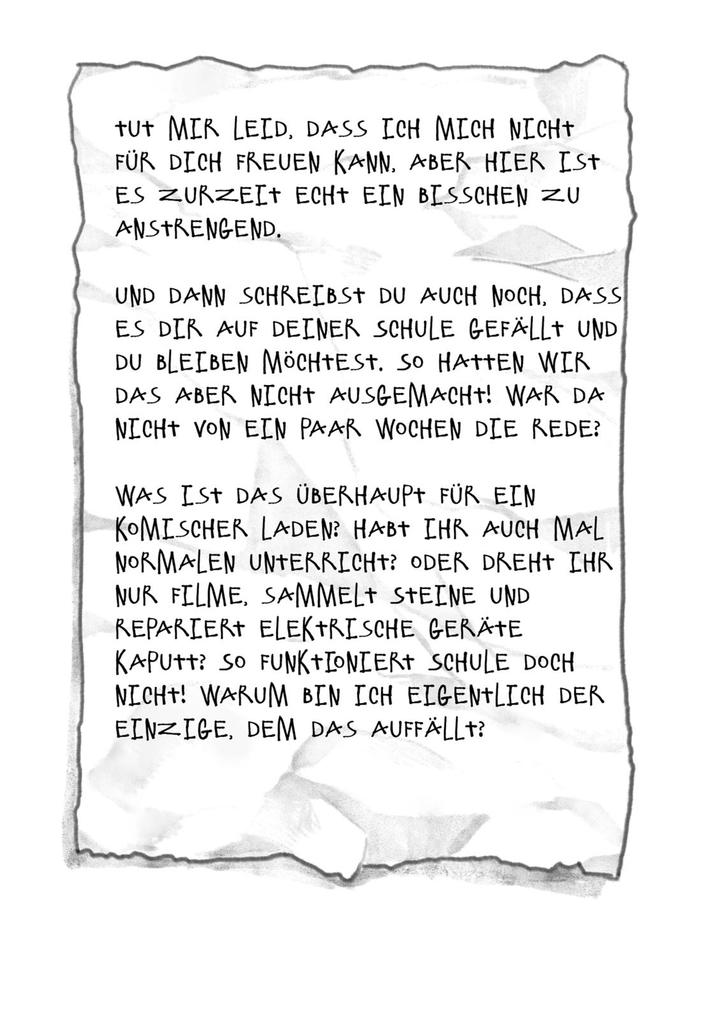 TUT MIR LEID, DASS ICH MICH NICHT
FÜR DICH FREUEN KANN, ABER HIER IST
ES ZURZEIT ECHT EIN BISSCHEN ZU
ANSTRENGEND.
UND DANN SCHREIBST DU AUCH NOCH, DASS
ES DIR AUF DEINER SCHULE GEFÄLLT UND
DU BLEIBEN MÖCHTEST. SO HATTEN WIR
DAS ABER NICHT AUSGEMACHT! WAR DA
NICHT VON EIN PAAR WOCHEN DIE REDE?
WAS IST DAS ÜBERHAUPT FÜR EIN
KOMISCHER LADEN? HABT IHR AUCH MAL
NORMALEN UNTERRICHT? ODER DREHT IHR
NUR FILME, SAMMELT STEINE UND
REPARIERT ELEKTRISCHE GERÄTE
KAPUTT? SO FUNKTIONIERT SCHULE DOCH
NICHT! WARUM BIN ICH EIGENTLICH DER
EINZIGE, DEM DAS AUFFÄLLT?